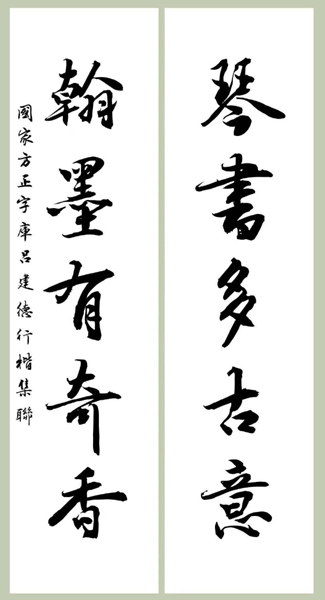 琴書多古意
翰墨有奇香
國家方正字庫吕建德行楷集聯